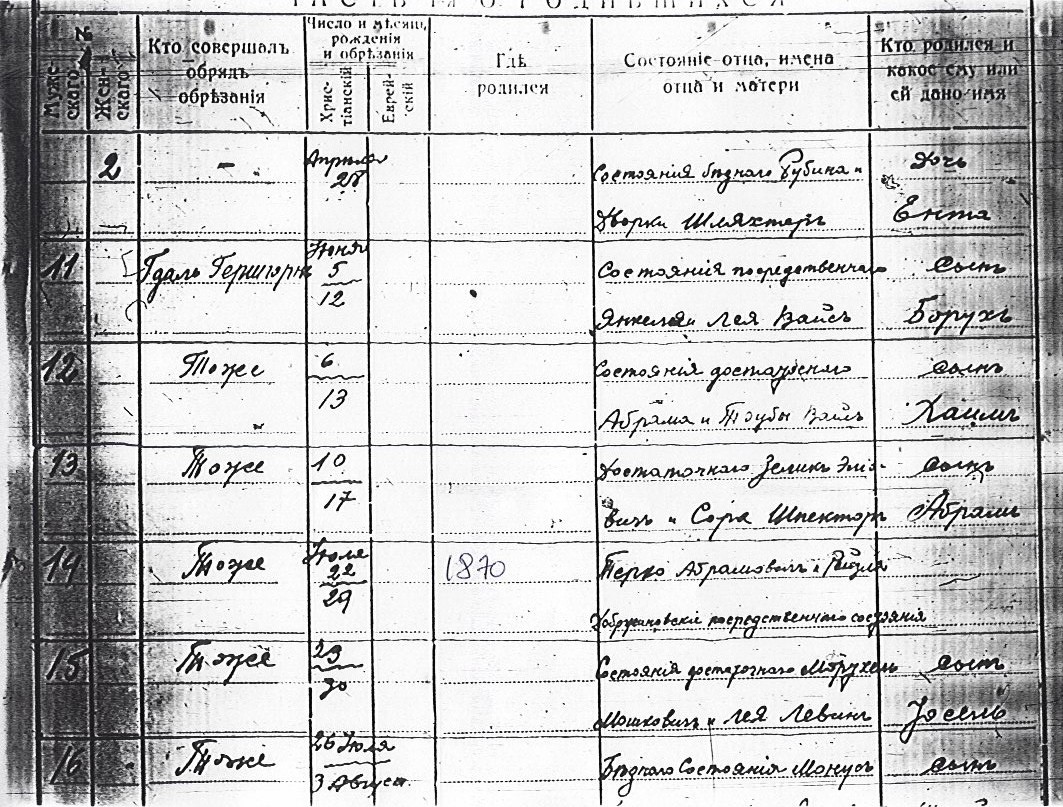 ЧАСТЬ I-Я О РОДИВШИХСЯ
№
Мужс-
скаго
Жен-
скаго
Кто совершалъ
обрядъ
обрѣзанія
Число и мѣсяц,
рожденія
и обрѣзанія
Хрис-
тіанскій
Еврей-
скій
Гдѣ
родился
Состояніе отца, имена
отца и матери
Кто родился и
какое ему или
ей дано имя
2
-
Апрѣля
28
Состоянія бѣднаго Рубина и
Дворки Шляхтеръ
Дочь
Ента
11
Гдаль
Іюня
5
12
Состоянія посредственнаго
Янкеля и Лея Вайсъ
сынъ
Борухъ
12
Тоже
6
13
Состоянія
Абрама и Таубы Вайсъ
сынъ
Хаимъ
13
Тоже
10
17
Достаточнаго Зеликъ
вичъ и Сора Шпекторъ
сынъ
Абрамъ
14
Тоже
Іюля
22
29
1870
Берко Абрамовичъ и Рейзля
посредственнаго состоянія
15
Тоже
23
30
Состоянія достаточнаго
Мошковичъ и Лея Левинъ
сынъ
Іосель
16
Тоже
26 Іюля
3 Август.
Бѣднаго Состоянія Монусъ
сынъ